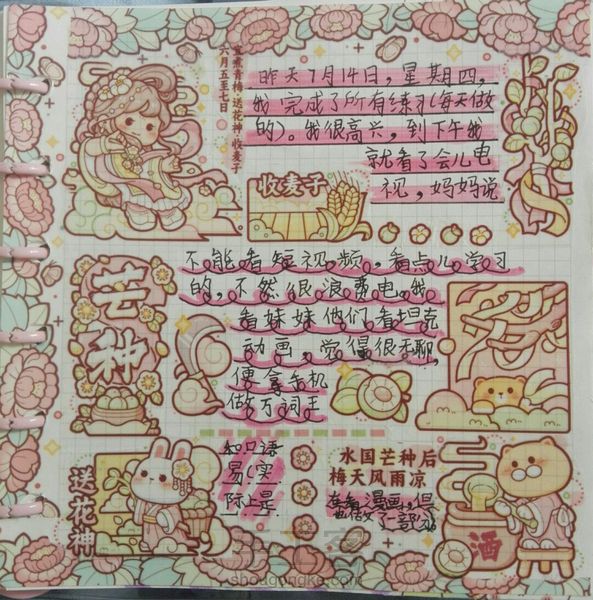 宜煮青梅 送花神 收麦子
六月五至七日
昨天7月14日，星期四，
我完成了所有练习(每天做
的)。我很高兴，到下午我
就看了会儿电
视，妈妈说
收麦子
不能看短视频，看点儿学习
的，不然很浪费电。我
看妹妹他们看坦克
动画，觉得很无聊，
便拿手机
做万词王
芒种
知口语
易(实
际上是
水国芒种后
梅天风雨凉
在看漫画，但
也做了一部分)。
送花神
酒
shougongke.com